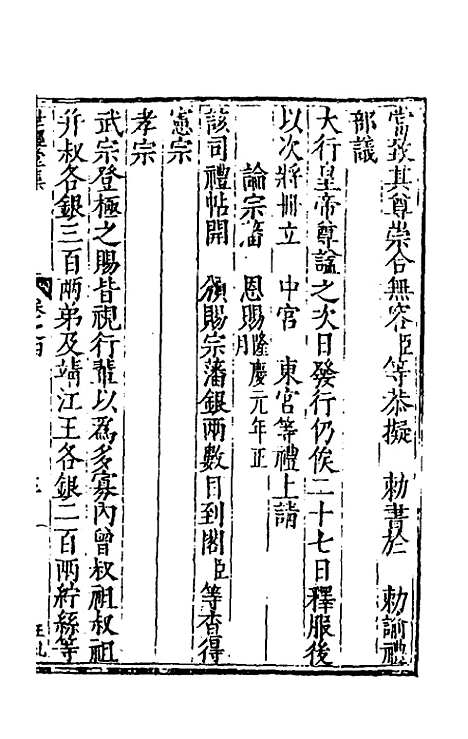 當致其尊崇合無容臣等恭擬　勅書於　勅諭禮
部議
大行皇帝尊諡之次日發行仍俟二十七日釋服後
以次將冊立　中宮　東宮等禮上請
論宗藩　恩賜隆慶元年正月
該司禮帖開　頒賜宗藩銀兩數目到閣臣等查得
憲宗
孝宗
武宗登極之賜皆視行輩以為多寡內曾叔祖叔祖
并叔各銀三百兩弟及靖江王各銀二百兩紵絲等